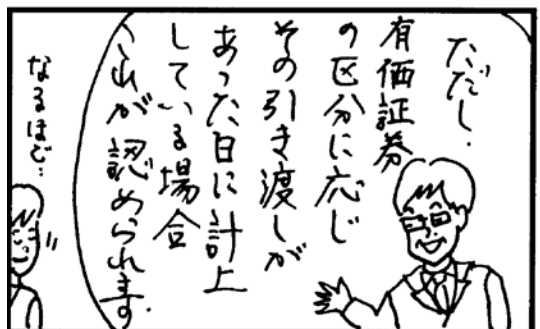 ただし、
有価証券
の区分に応じ
その引き渡しが
あった日に計上
している場合
これが認められます.
なるほど…